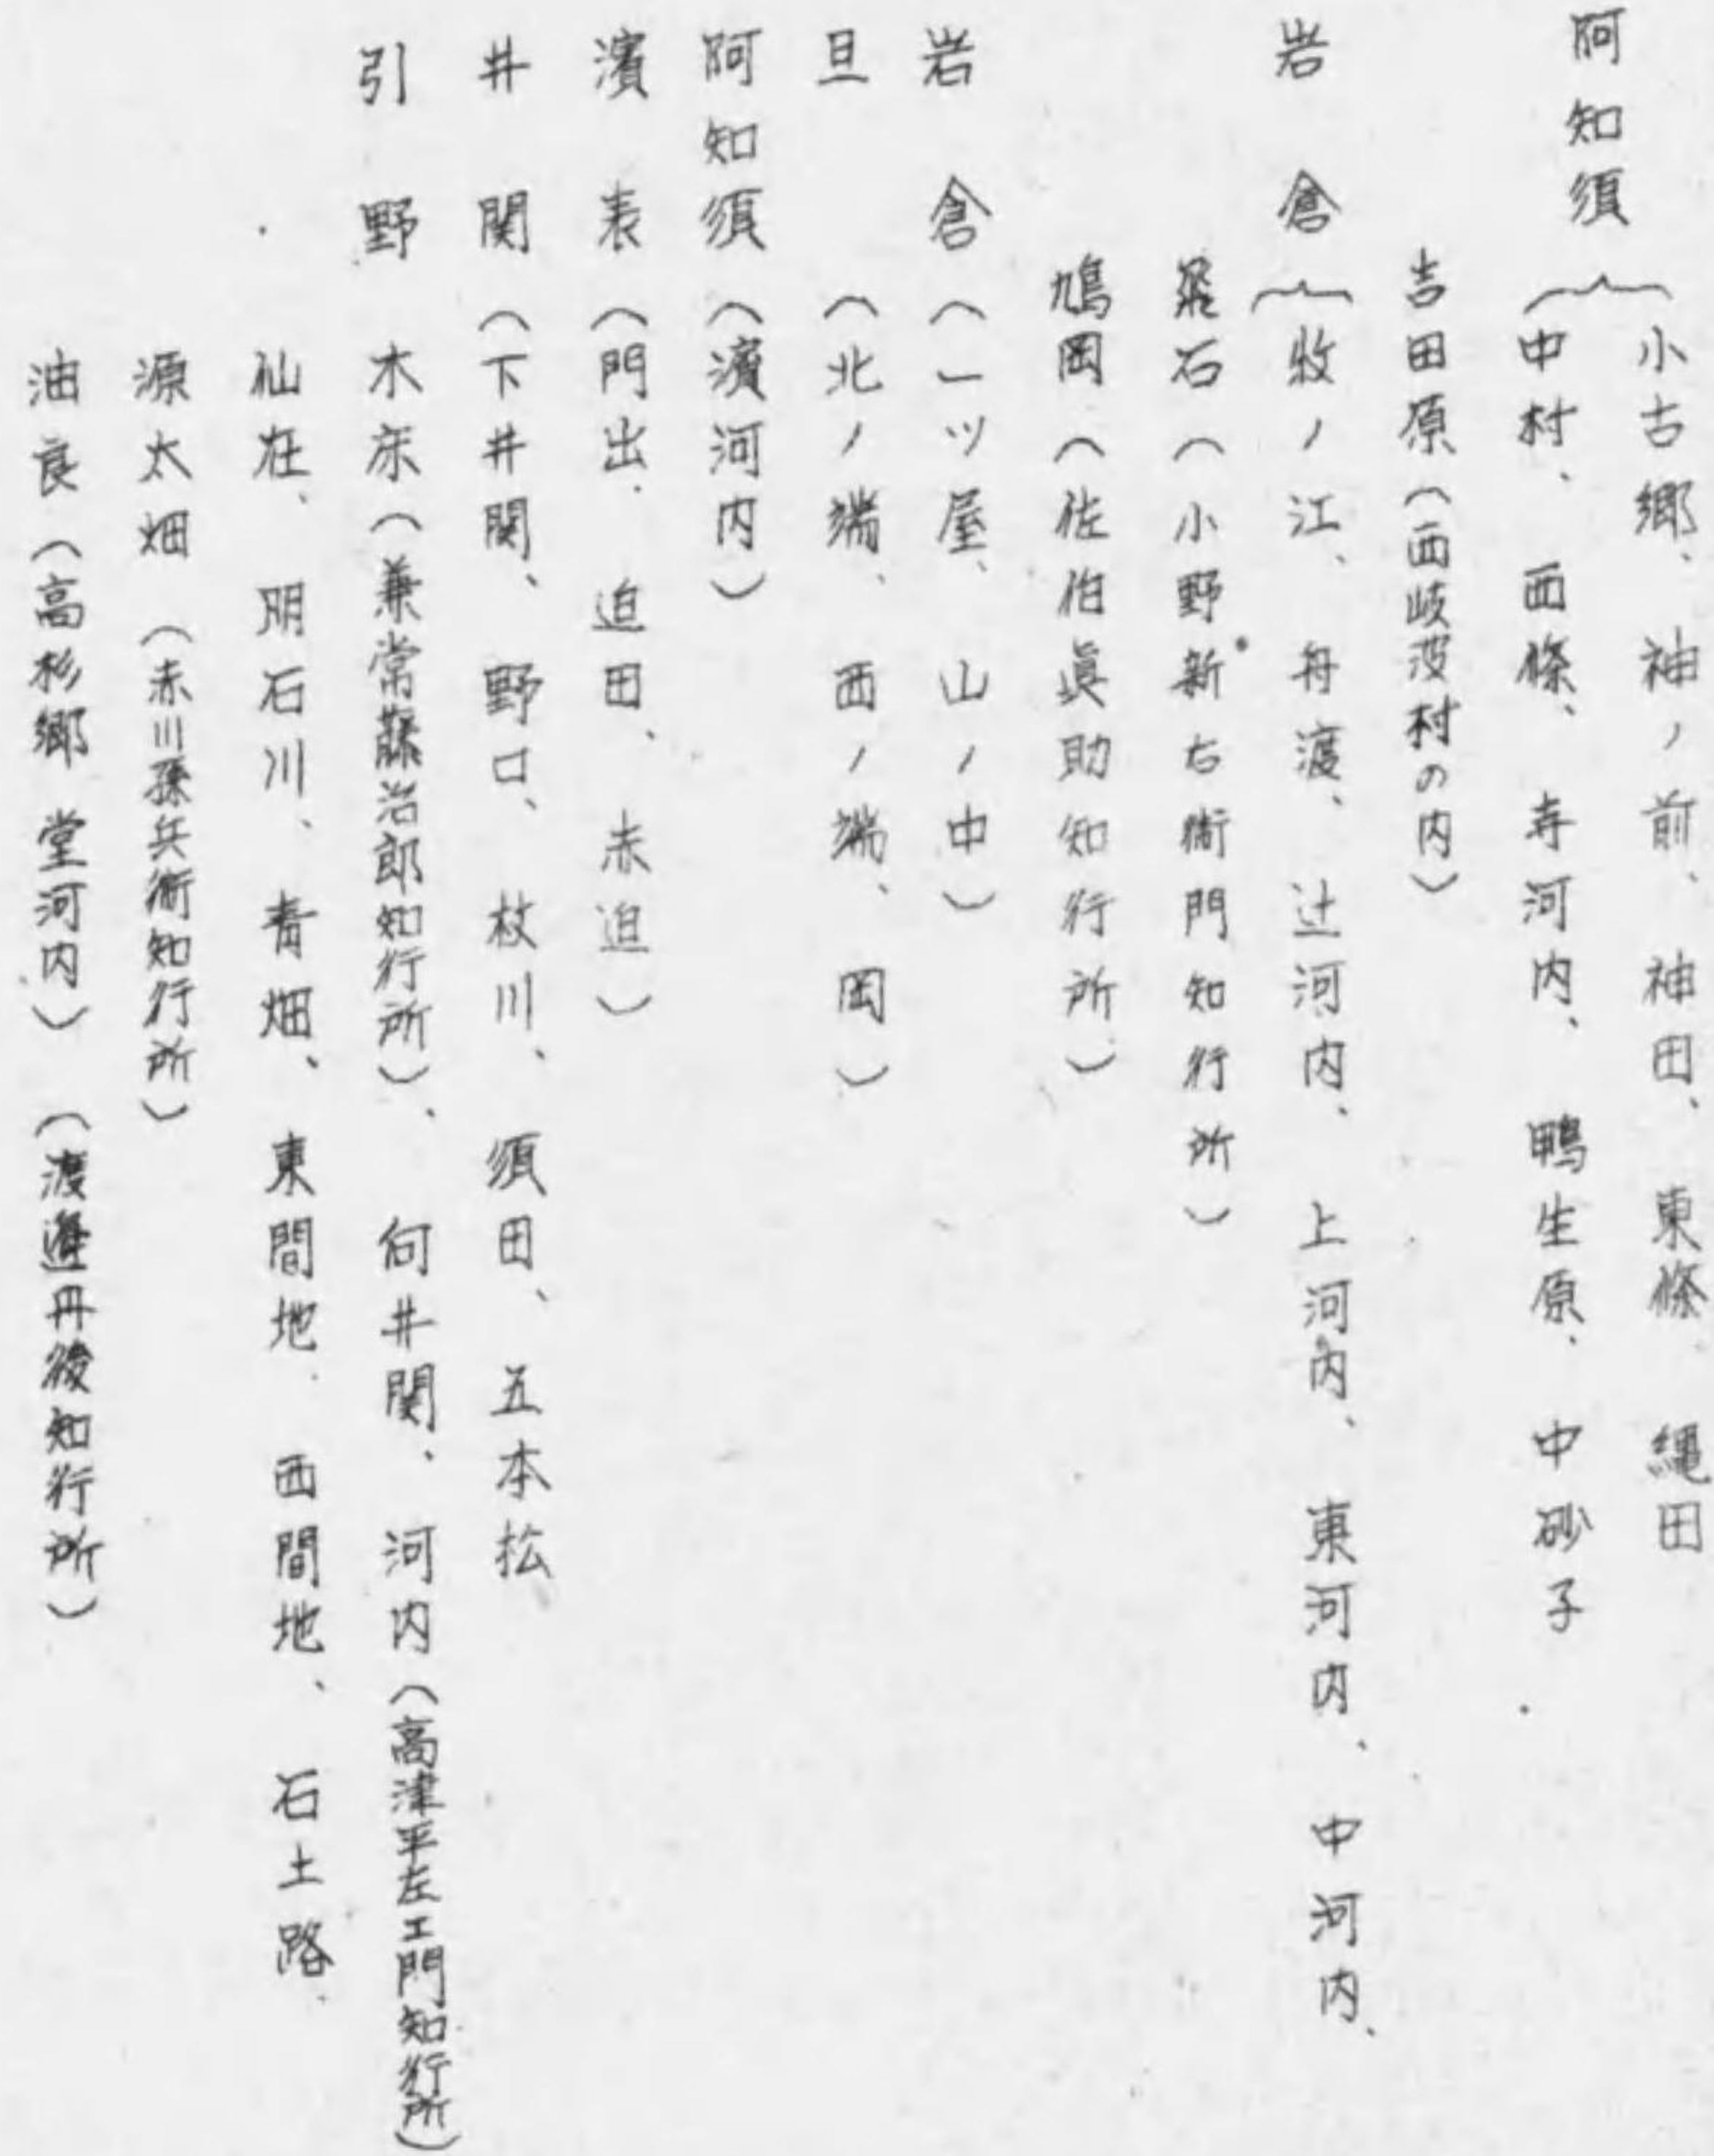 阿知須
小古郷、神ノ前、神田、東條、縄田
(中村、西條、寺河内、鴨生原、中砂子
吉田原(西岐波村の内)
岩倉(牧ノ江、舟渡、辻河内、上河内、東河内、中河内、
飛石(小野新右衛門知行所)
鳩岡(佐伯眞助知行所)
岩倉(一ツ屋、山ノ中)
旦(北ノ端、西ノ端、岡)
阿知須(濱河内)
濱表(門出、迫田、赤迫)
井関(下井関、野口、枝川、須田、五本松
引野 木床(兼常藤治郎知行所)、向井関、河内(高津平左エ門知行所)
仙在、明石川、青畑、東間地、西間地、石土路
源太畑(赤川孫兵衛知行所)
油良(高杉郷 堂河内)(渡邊丹後知行所)